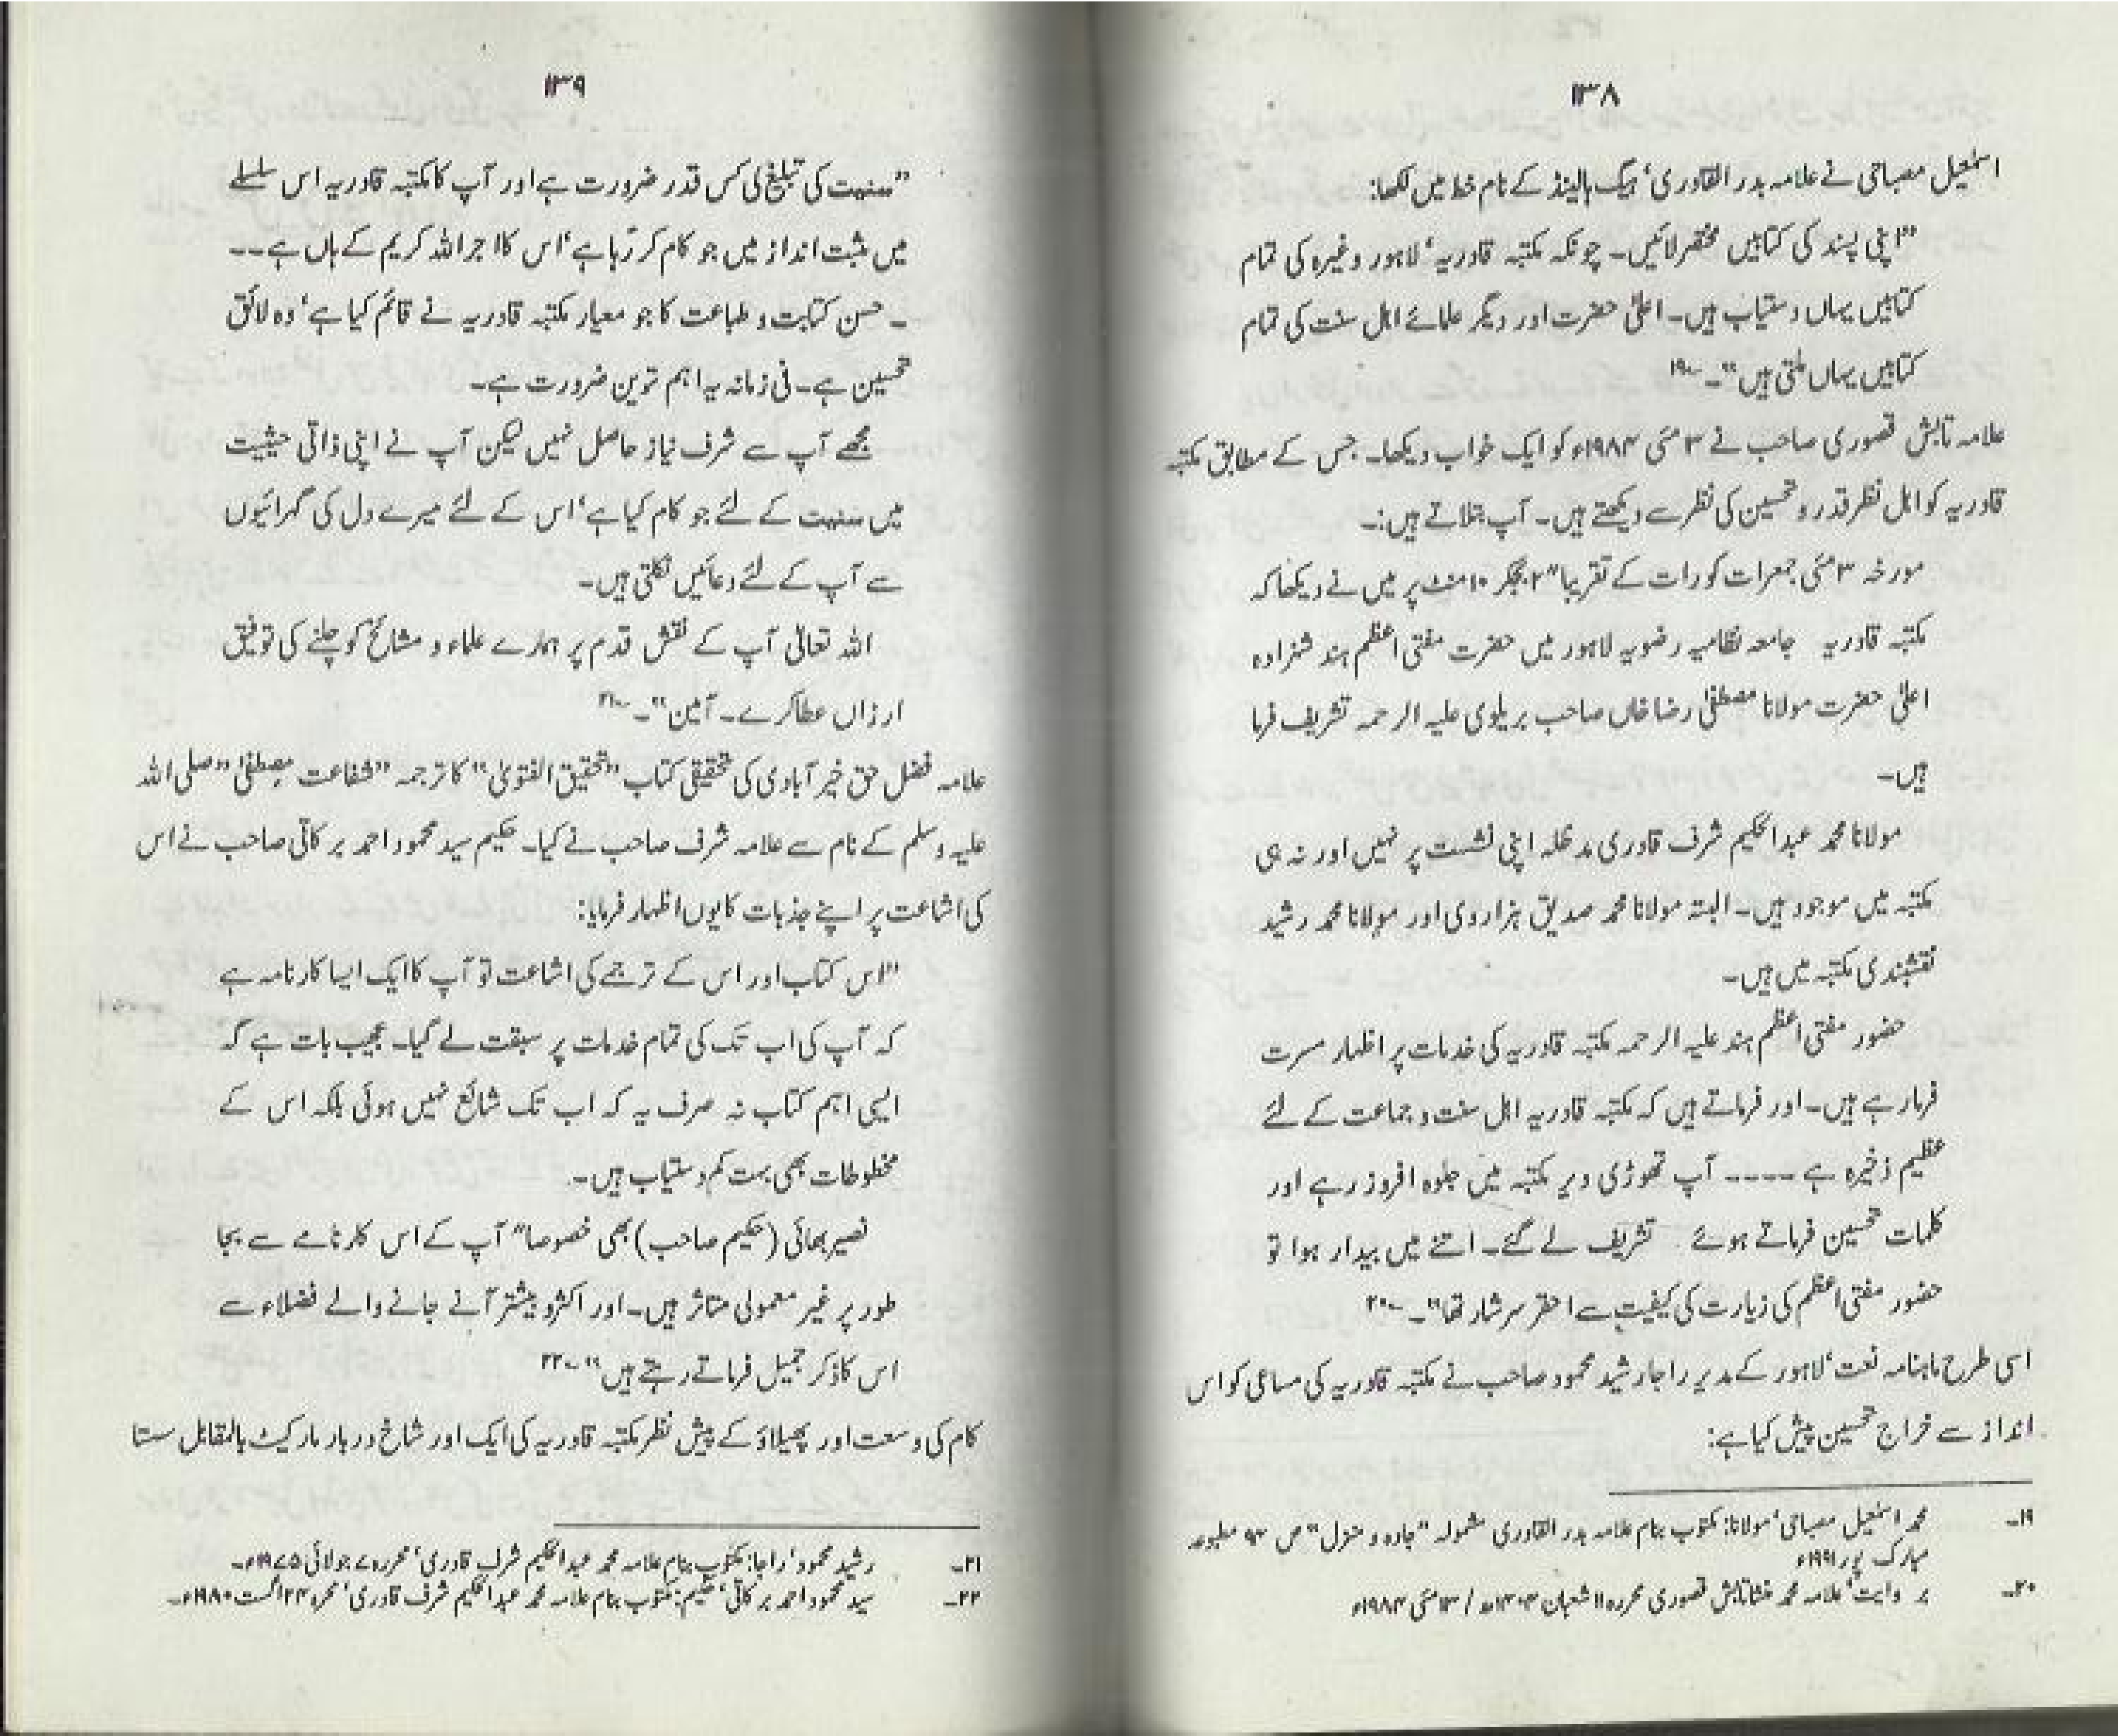 ۱۳۸
اسمٰعیل مصباحی نے علامہ بدر القادری، ہیگ ہالینڈ کے نام خط میں لکھا:
"اپنی پسند کی کتابیں مختصر لائیں۔ چونکہ مکتبہ قادریہ، لاہور وغیرہ کی تمام
کتابیں یہاں دستیاب ہیں۔ اعلیٰ حضرت اور دیگر علمائے اہل سنت کی تمام
کتابیں یہاں ملتی ہیں"۔ ۱۹؎
علامہ تابش قصوری صاحب نے ۳ مئی ۱۹۸۴ء کو ایک خواب دیکھا۔ جس کے مطابق مکتبہ
قادریہ کو اہل نظر قدر و تحسین کی نظر سے دیکھتے ہیں۔ آپ بتلاتے ہیں:۔
مورخہ ۳ مئی جمعرات کو رات کے تقریبا" ۲ بجکر ۱۰ منٹ پر میں نے دیکھا کہ
مکتبہ قادریہ جامعہ نظامیہ رضویہ لاہور میں حضرت مفتی اعظم ہند شہزادہ
اعلیٰ حضرت مولانا مصطفیٰ رضا خاں صاحب بریلوی علیہ الرحمہ تشریف فرما
ہیں۔
مولانا محمد عبدالحکیم شرف قادری مدظلہ اپنی نشست پر نہیں اور نہ ہی
مکتبہ میں موجود ہیں۔ البتہ مولانا محمد صدیق ہزاروی اور مولانا محمد رشید
نقشبندی مکتبہ میں ہیں۔
حضور مفتی اعظم ہند علیہ الرحمہ مکتبہ قادریہ کی خدمات پر اظہار مسرت
فرمارہے ہیں۔ اور فرماتے ہیں کہ مکتبہ قادریہ اہل سنت و جماعت کے لئے
عظیم ذخیرہ ہے ---- آپ تھوڑی دیر مکتبہ میں جلوہ افروز رہے اور
کلمات تحسین فرماتے ہوئے تشریف لے گئے۔ اتنے میں بیدار ہوا تو
حضور مفتی اعظم کی زیارت کی کیفیت سے احقر سرشار تھا"۔ ۲۰؎
اسی طرح ماہنامہ نعت، لاہور کے مدیر راجا رشید محمود صاحب نے مکتبہ قادریہ کی مساعی کو اس
انداز سے خراج تحسین پیش کیا ہے:
۱۹۔ محمد اسمٰعیل مصباحی، مولانا: مکتوب بنام علامہ بدر القادری مشمولہ "جادہ و منزل" ص ۹۴ مطبوعہ
مبارک پور ۱۹۹۱ء
۲۰۔ بر وایت، علامہ محمد منشا تابش قصوری محررہ ۱۱ شعبان ۱۴۰۴ھ / ۱۳ مئی ۱۹۸۴ء
۱۳۹
"سنیت کی تبلیغ کی کس قدر ضرورت ہے اور آپ کا مکتبہ قادریہ اس سلسلے
میں مثبت انداز میں جو کام کر رہا ہے، اس کا اجر اللہ کریم کے ہاں ہے۔۔
۔ حسن کتابت و طباعت کا جو معیار مکتبہ قادریہ نے قائم کیا ہے، وہ لائق
تحسین ہے۔ فی زمانہ یہ اہم ترین ضرورت ہے۔
مجھے آپ سے شرف نیاز حاصل نہیں لیکن آپ نے اپنی ذاتی حیثیت
میں سنیت کے لئے جو کام کیا ہے، اس کے لئے میرے دل کی گہرائیوں
سے آپ کے لئے دعائیں نکلتی ہیں۔
اللہ تعالیٰ آپ کے نقش قدم پر ہمارے علماء و مشائخ کو چلنے کی توفیق
ارزاں عطا کرے۔ آمین"۔ ۲۱؎
علامہ فضل حق خیر آبادی کی تحقیقی کتاب "تحقیق الفتویٰ" کا ترجمہ "شفاعت مصطفیٰ" صلی اللہ
علیہ وسلم کے نام سے علامہ شرف صاحب نے کیا۔ حکیم سید محمود احمد برکاتی صاحب نے اس
کی اشاعت پر اپنے جذبات کا یوں اظہار فرمایا:
"اس کتاب اور اس کے ترجمے کی اشاعت تو آپ کا ایک ایسا کارنامہ ہے
کہ آپ کی اب تک کی تمام خدمات پر سبقت لے گیا۔ عجیب بات ہے کہ
ایسی اہم کتاب نہ صرف یہ کہ اب تک شائع نہیں ہوئی بلکہ اس کے
مخطوطات بھی بہت کم دستیاب ہیں۔
نصیر بھائی (حکیم صاحب) بھی خصوصا" آپ کے اس کارنامے سے بجا
طور پر غیر معمولی متاثر ہیں۔ اور اکثر و بیشتر آنے جانے والے فضلاء سے
اس کا ذکر جمیل فرماتے رہتے ہیں" ۲۲؎
کام کی وسعت اور پھیلاؤ کے پیش نظر مکتبہ قادریہ کی ایک اور شاخ دربار مارکیٹ بالمقابل سستا
۲۱۔ رشید محمود، راجا: مکتوب بنام علامہ محمد عبدالحکیم شرف قادری، محررہ ۷ جولائی ۱۹۷۵ء۔
۲۲۔ سید محمود احمد برکاتی، حکیم: مکتوب بنام علامہ محمد عبدالحکیم شرف قادری، محرہ ۲۴ اگست ۱۹۸۰ء۔